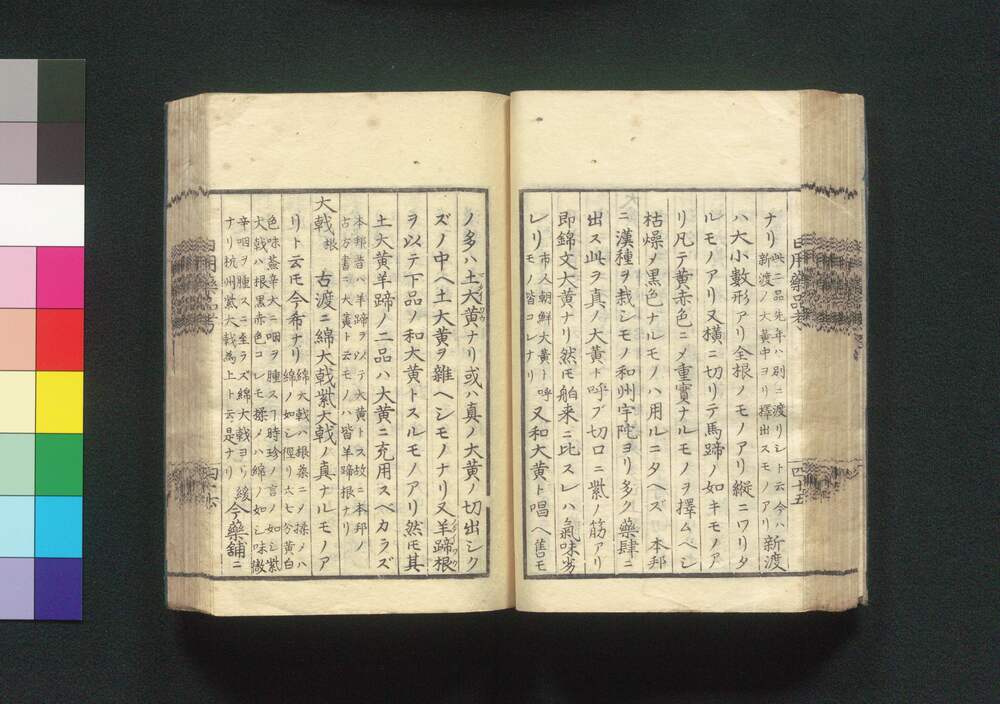 日用藥品考
四十五
ナリ 此二品先年ハ別ニ渡リシト云今ハ新渡
新渡ノ大黄中ヨリ擇出スモノアリ
ハ大小數形アリ全根ノモノアリ縱ニワリタ
ルモノアリ又横ニ切リテ馬蹄ノ如キモノア
リ凡テ黄赤色ニメ重實ナルモノヲ擇ムベシ
枯燥メ黒色ナルモノハ用ルニタヘズ 本邦
ニ漢種ヲ栽シモノ和州宇陀ヨリ多ク藥肆ニ
出ス此ヲ真ノ大黄ト呼ブ切口ニ紫ノ筋アリ
即錦文大黄ナリ然モ舶来ニ比スレハ氣味劣
レリ 市人朝鮮大黄ト呼
モノ皆コレナリ 又和大黄ト唱ヘ售モ
ノ多ハ土大黄ナリ或ハ真ノ大黄ノ切出シク
ズノ中ヘ土大黄ヲ雜ヘシモノナリ又羊蹄根
ヲ以テ下品ノ和大黄トスルモノアリ然モ其
土大黄羊蹄ノ二品ハ大黄ニ充用スベカラズ
本邦昔ハ羊蹄ヲ以テ大黄トス故ニ本邦ノ
古方書ニ大黄ト云モノハ皆羊蹄根ナリ
大戟 根 古渡ニ綿大戟紫大戟ノ真ナルモノア
リト云モ今希ナリ 綿大戟ハ根柔ニメ揉メハ
綿ノ如シ徑リ六七分黄白
色味蒸辛大ニ咽ヲ腫スヿ時珍ノ言ノ如シ紫
大戟ハ根黒赤色コレモ揉メハ綿ノ如シ味微
辛咽ヲ腫スニ至ラズ綿大戟ヨリ緩
ナリ杭州紫大戟為上ト云是ナリ 今藥舗ニ
日用藥品考